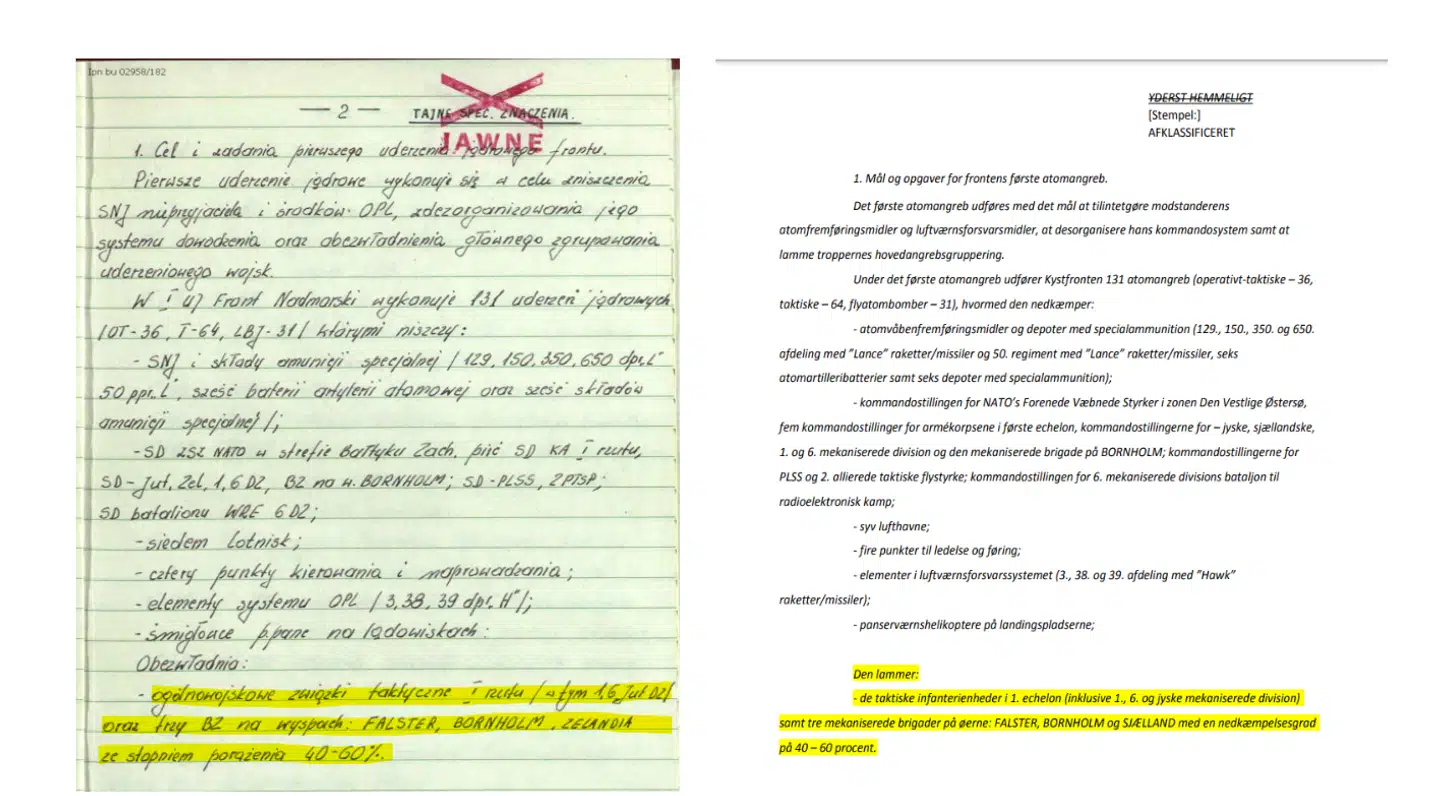 Ipn bu 02958/182
— 2 —
TAJNE SPEC. ZNACZENIA.
JAWNE
1. Cel i zadania pierwszego uderzenia jądrowego frontu.
Pierwsze uderzenie jądrowe wykonuje się w celu zniszczenia
SNJ nieprzyjaciela i środków OPL, zdezorganizowania jego
systemu dowodzenia oraz obezwładnienia głównego zgrupowania
uderzeniowego wojsk.
W I UJ Front Nadmorski wykonuje 131 uderzeń jądrowych
/OT-36, T-64, LBJ-31/ którymi niszczy:
- SNJ i składy amunicji specjalnej /129, 150, 350, 650 dpr.„L"
50 ppr.„L", sześć baterii artylerii atomowej oraz sześć składów
amunicji specjalnej/;
- SD ZSZ NATO w strefie Bałtyku Zach. pięć SD KA I rzutu,
SD-Jut, Zel, 1, 6 DZ, BZ na w. BORNHOLM; SD-PLSS, 2PTSP;
SD batalionu WRE 6 DZ;
- siedem lotnisk;
- cztery punkty kierowania i naprowadzania;
- elementy systemu OPL /3, 38, 39 dpr.„H"/;
- śmigłowce p.panc na lądowiskach:
Obezwładnia:
- ogólnowojskowe związki taktyczne I rzutu /w tym 1, 6, Jut DZ/
oraz trzy BZ na wyspach: FALSTER, BORNHOLM, ZELANDIA
ze stopniem porażenia 40-60%.
YDERST HEMMELIGT
[Stempel:]
AFKLASSIFICERET
1. Mål og opgaver for frontens første atomangreb.
Det første atomangreb udføres med det mål at tilintetgøre modstanderens
atomfremføringsmidler og luftværnsforsvarsmidler, at desorganisere hans kommandosystem samt at
lamme troppernes hovedangrebsgruppering.
Under det første atomangreb udfører Kystfronten 131 atomangreb (operativt-taktiske – 36,
taktiske – 64, flyatombomber – 31), hvormed den nedkæmper:
- atomvåbenfremføringsmidler og depoter med specialammunition (129., 150., 350. og 650.
afdeling med "Lance" raketter/missiler og 50. regiment med "Lance" raketter/missiler, seks
atomartilleribatterier samt seks depoter med specialammunition);
- kommandostillingen for NATO's Forenede Væbnede Styrker i zonen Den Vestlige Østersø,
fem kommandostillinger for armékorpsene i første echelon, kommandostillingerne for – jyske, sjællandske,
1. og 6. mekaniserede division og den mekaniserede brigade på BORNHOLM; kommandostillingerne for
PLSS og 2. allierede taktiske flystyrke; kommandostillingen for 6. mekaniserede divisions bataljon til
radioelektronisk kamp;
- syv lufthavne;
- fire punkter til ledelse og føring;
- elementer i luftværnsforsvarssystemet (3., 38. og 39. afdeling med "Hawk"
raketter/missiler);
- panserværnshelikoptere på landingspladserne;
Den lammer:
- de taktiske infanterienheder i 1. echelon (inklusive 1., 6. og jyske mekaniserede division)
samt tre mekaniserede brigader på øerne: FALSTER, BORNHOLM og SJÆLLAND med en nedkæmpelsesgrad
på 40 – 60 procent.